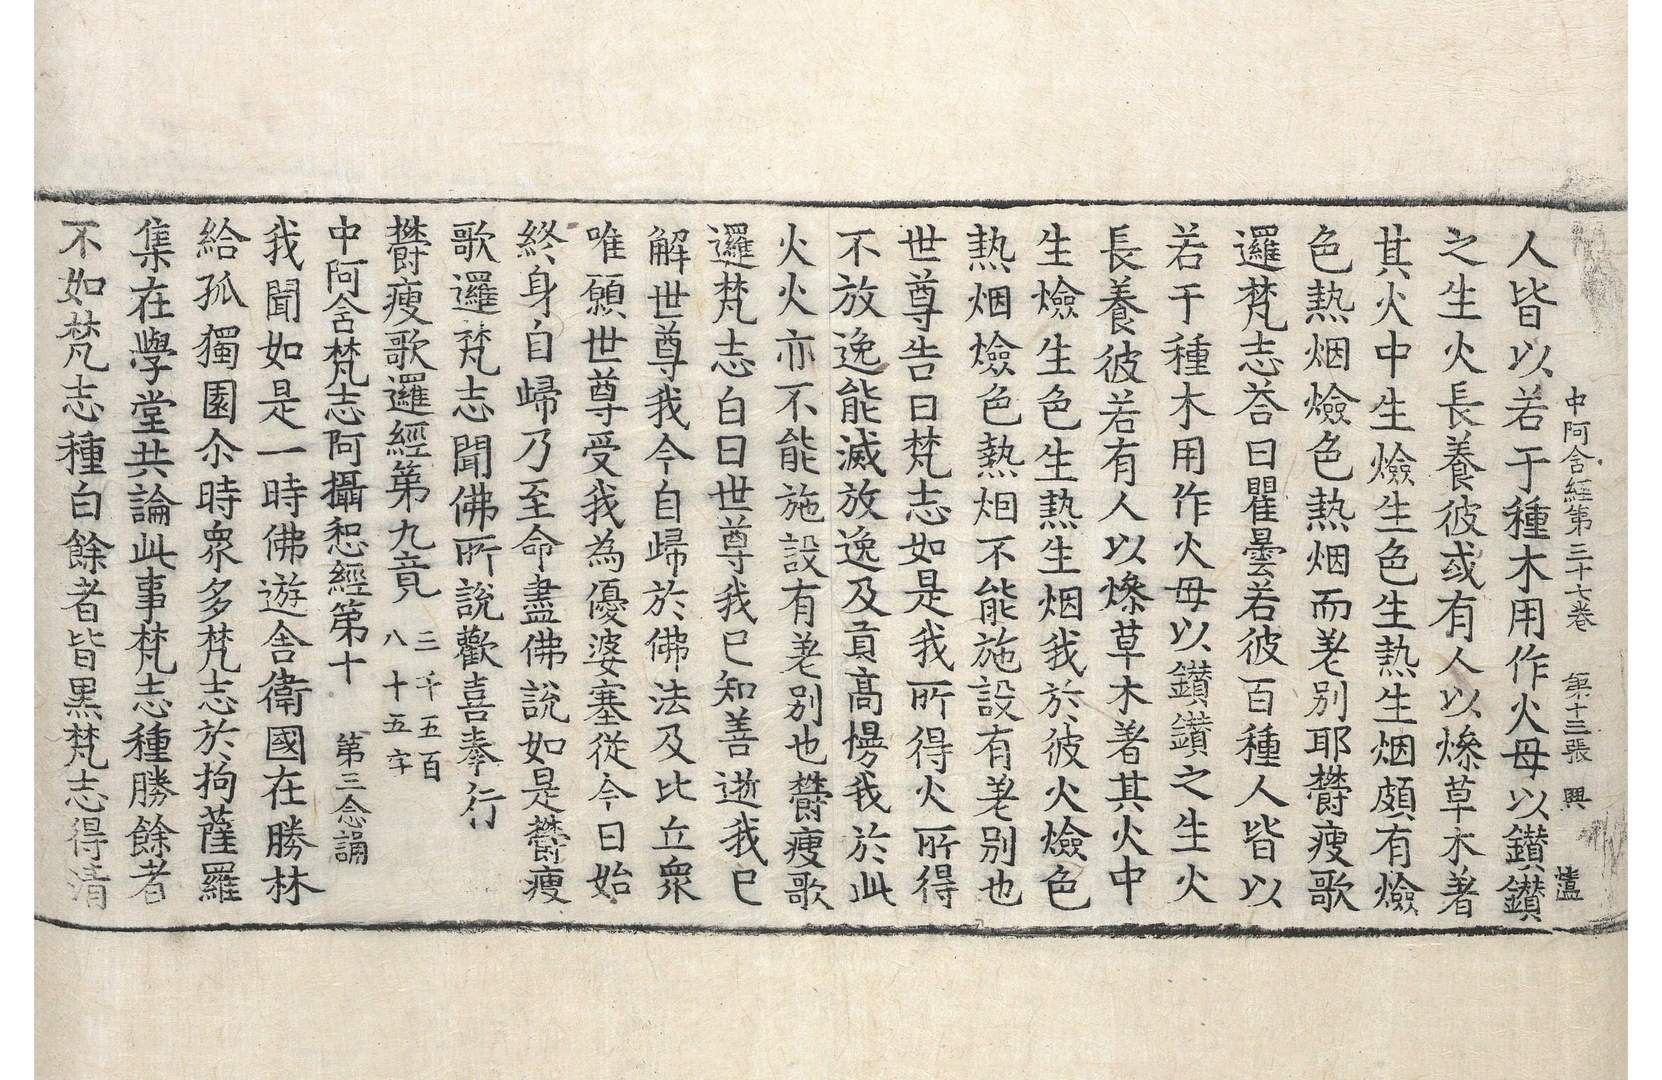 中阿含經第三十七卷　第十三張　興
人皆以若干種木用作火母以鑚鑚
之生火長養彼或有人以燥草木著
其火中生燄生色生熱生烟頗有燄
色熱烟燄色熱烟而差別耶欝瘦歌
邏梵志荅曰瞿曇若彼百種人皆以
若干種木用作火母以鑚鑚之生火
長養彼若有人以燥草木著其火中
生燄生色生熱生烟我於彼火燄色
熱烟燄色熱烟不能施設有差別也
世尊告曰梵志如是我所得火所得
不放逸能滅放逸及貢高慢我於此
火火亦不能施設有差別也欝瘦歌
邏梵志白曰世尊我已知善逝我已
解世尊我今自歸於佛法及比丘衆
唯願世尊受我為優婆塞從今日始
終身自歸乃至命盡佛說如是欝瘦
歌邏梵志聞佛所說歡喜奉行
欝瘦歌邏經第九竟　三千五百
八十五字
中阿含梵志阿攝惒經第十　第三念誦
我聞如是一時佛遊舍衛國在勝林
給孤獨園尒時衆多梵志於拘薩羅
集在學堂共論此事梵志種勝餘者
不如梵志種白餘者皆黑梵志得清